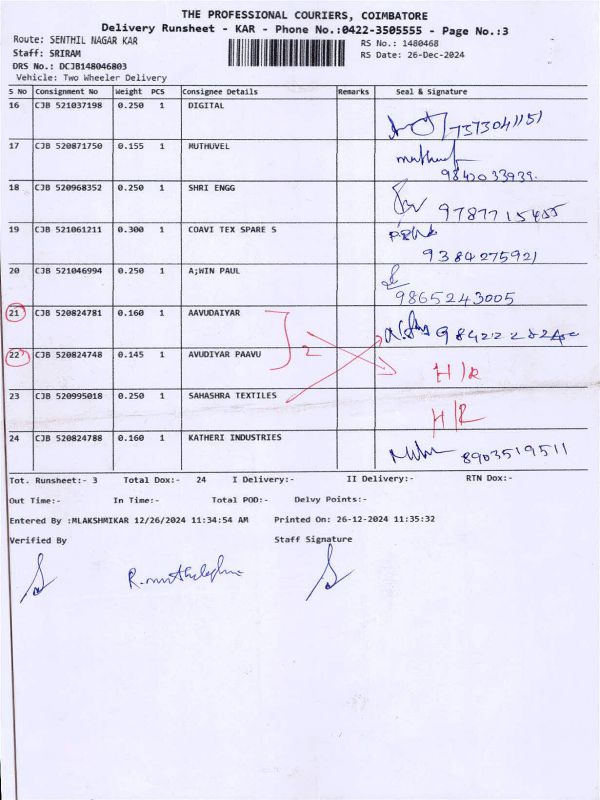 THE PROFESSIONAL COURIERS, COIMBATORE
Delivery Runsheet - KAR - Phone No.:0422-3505555 - Page No.:3
Route: SENTHIL NAGAR KAR RS No.: 1480468
Staff: SRIRAM RS Date: 26-Dec-2024
DRS No.: DCJB148046803
Vehicle: Two Wheeler Delivery
S No Consignment No Weight PCS Consignee Details Remarks Seal & Signature
16 CJB 521037198 0.250 1 DIGITAL
7373041151
17 CJB 520871750 0.155 1 MUTHUVEL
9842033939.
18 CJB 520968352 0.250 1 SHRI ENGG
9787715455
19 CJB 521061211 0.300 1 COAVI TEX SPARE S
9384275921
20 CJB 521046994 0.250 1 A;WIN PAUL
9865243005
21 CJB 520824781 0.160 1 AAVUDAIYAR
2
22 CJB 520824748 0.145 1 AVUDIYAR PAAVU
H/R
23 CJB 520995018 0.250 1 SAHASHRA TEXTILES
H/R
24 CJB 520824788 0.160 1 KATHERI INDUSTRIES
8903519511
Tot. Runsheet:- 3 Total Dox:- 24 I Delivery:- II Delivery:- RTN Dox:-
Out Time:- In Time:- Total POD:- Delvy Points:-
Entered By :MLAKSHMIKAR 12/26/2024 11:34:54 AM Printed On: 26-12-2024 11:35:32
Verified By Staff Signature